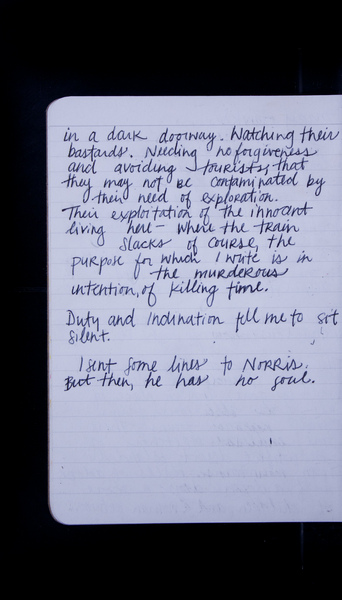 in a dark doorway. Watching their
bastards. Needing no forgiveness
and avoiding tourists, that
they may not be contaminated by
their need of exploration.
Their exploitation of the innocent
living here - where the train
slacks of course, the
purpose for which I write is in
the murderous
intention, of killing time.
Duty and Inclination tell me to sit
silent.
I sent some lines to NORRIS.
But then, he has no soul.